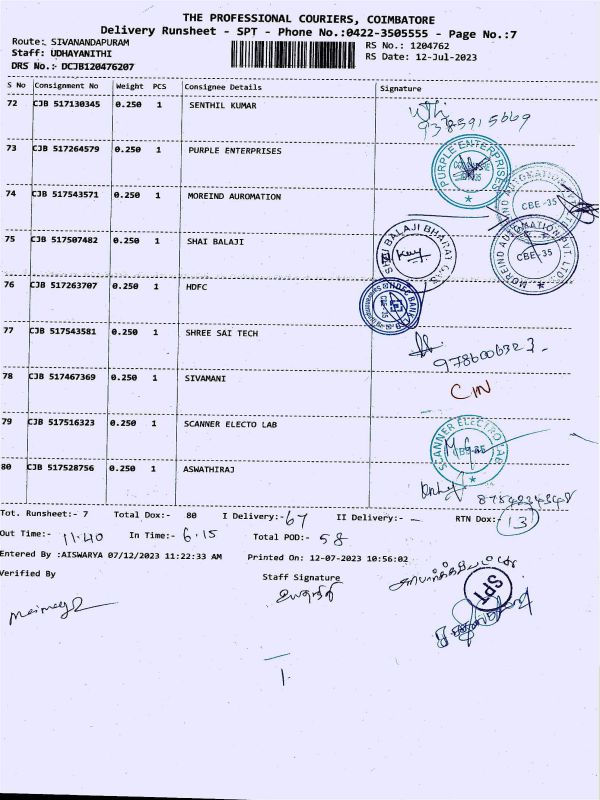 THE PROFESSIONAL COURIERS, COIMBATORE
Delivery Runsheet - SPT - Phone No.:0422-3505555 - Page No.:7
Route: SIVANANDAPURAM
RS No.: 1204762
Staff: UDHAYANITHI
RS Date: 12-Jul-2023
DRS No.:- DCJB120476207
S No Consignment No Weight PCS Consignee Details Signature
72 CJB 517130345 0.250 1 SENTHIL KUMAR
9385915669
73 CJB 517264579 0.250 1 PURPLE ENTERPRISES
PURPLE ENTERPRISES
74 CJB 517543571 0.250 1 MOREIND AUROMATION
CBE-35
75 CJB 517507482 0.250 1 SHAI BALAJI
MOREIND AUTOMATION PVT. LTD. CBE-35
76 CJB 517263707 0.250 1 HDFC
HDFC BANK
77 CJB 517543581 0.250 1 SHREE SAI TECH
78 CJB 517467369 0.250 1 SIVAMANI
79 CJB 517516323 0.250 1 SCANNER ELECTO LAB
SCANNER ELECTRO LAB
80 CJB 517528756 0.250 1 ASWATHIRAJ
Tot. Runsheet:- 7 Total Dox:- 80 I Delivery:- 67 II Delivery:- - RTN Dox:- 13
Out Time:- 11.40 In Time:- 6.15 Total POD:- 58
Entered By :AISWARYA 07/12/2023 11:22:33 AM Printed On: 12-07-2023 10:56:02
Verified By Staff Signature
SPT